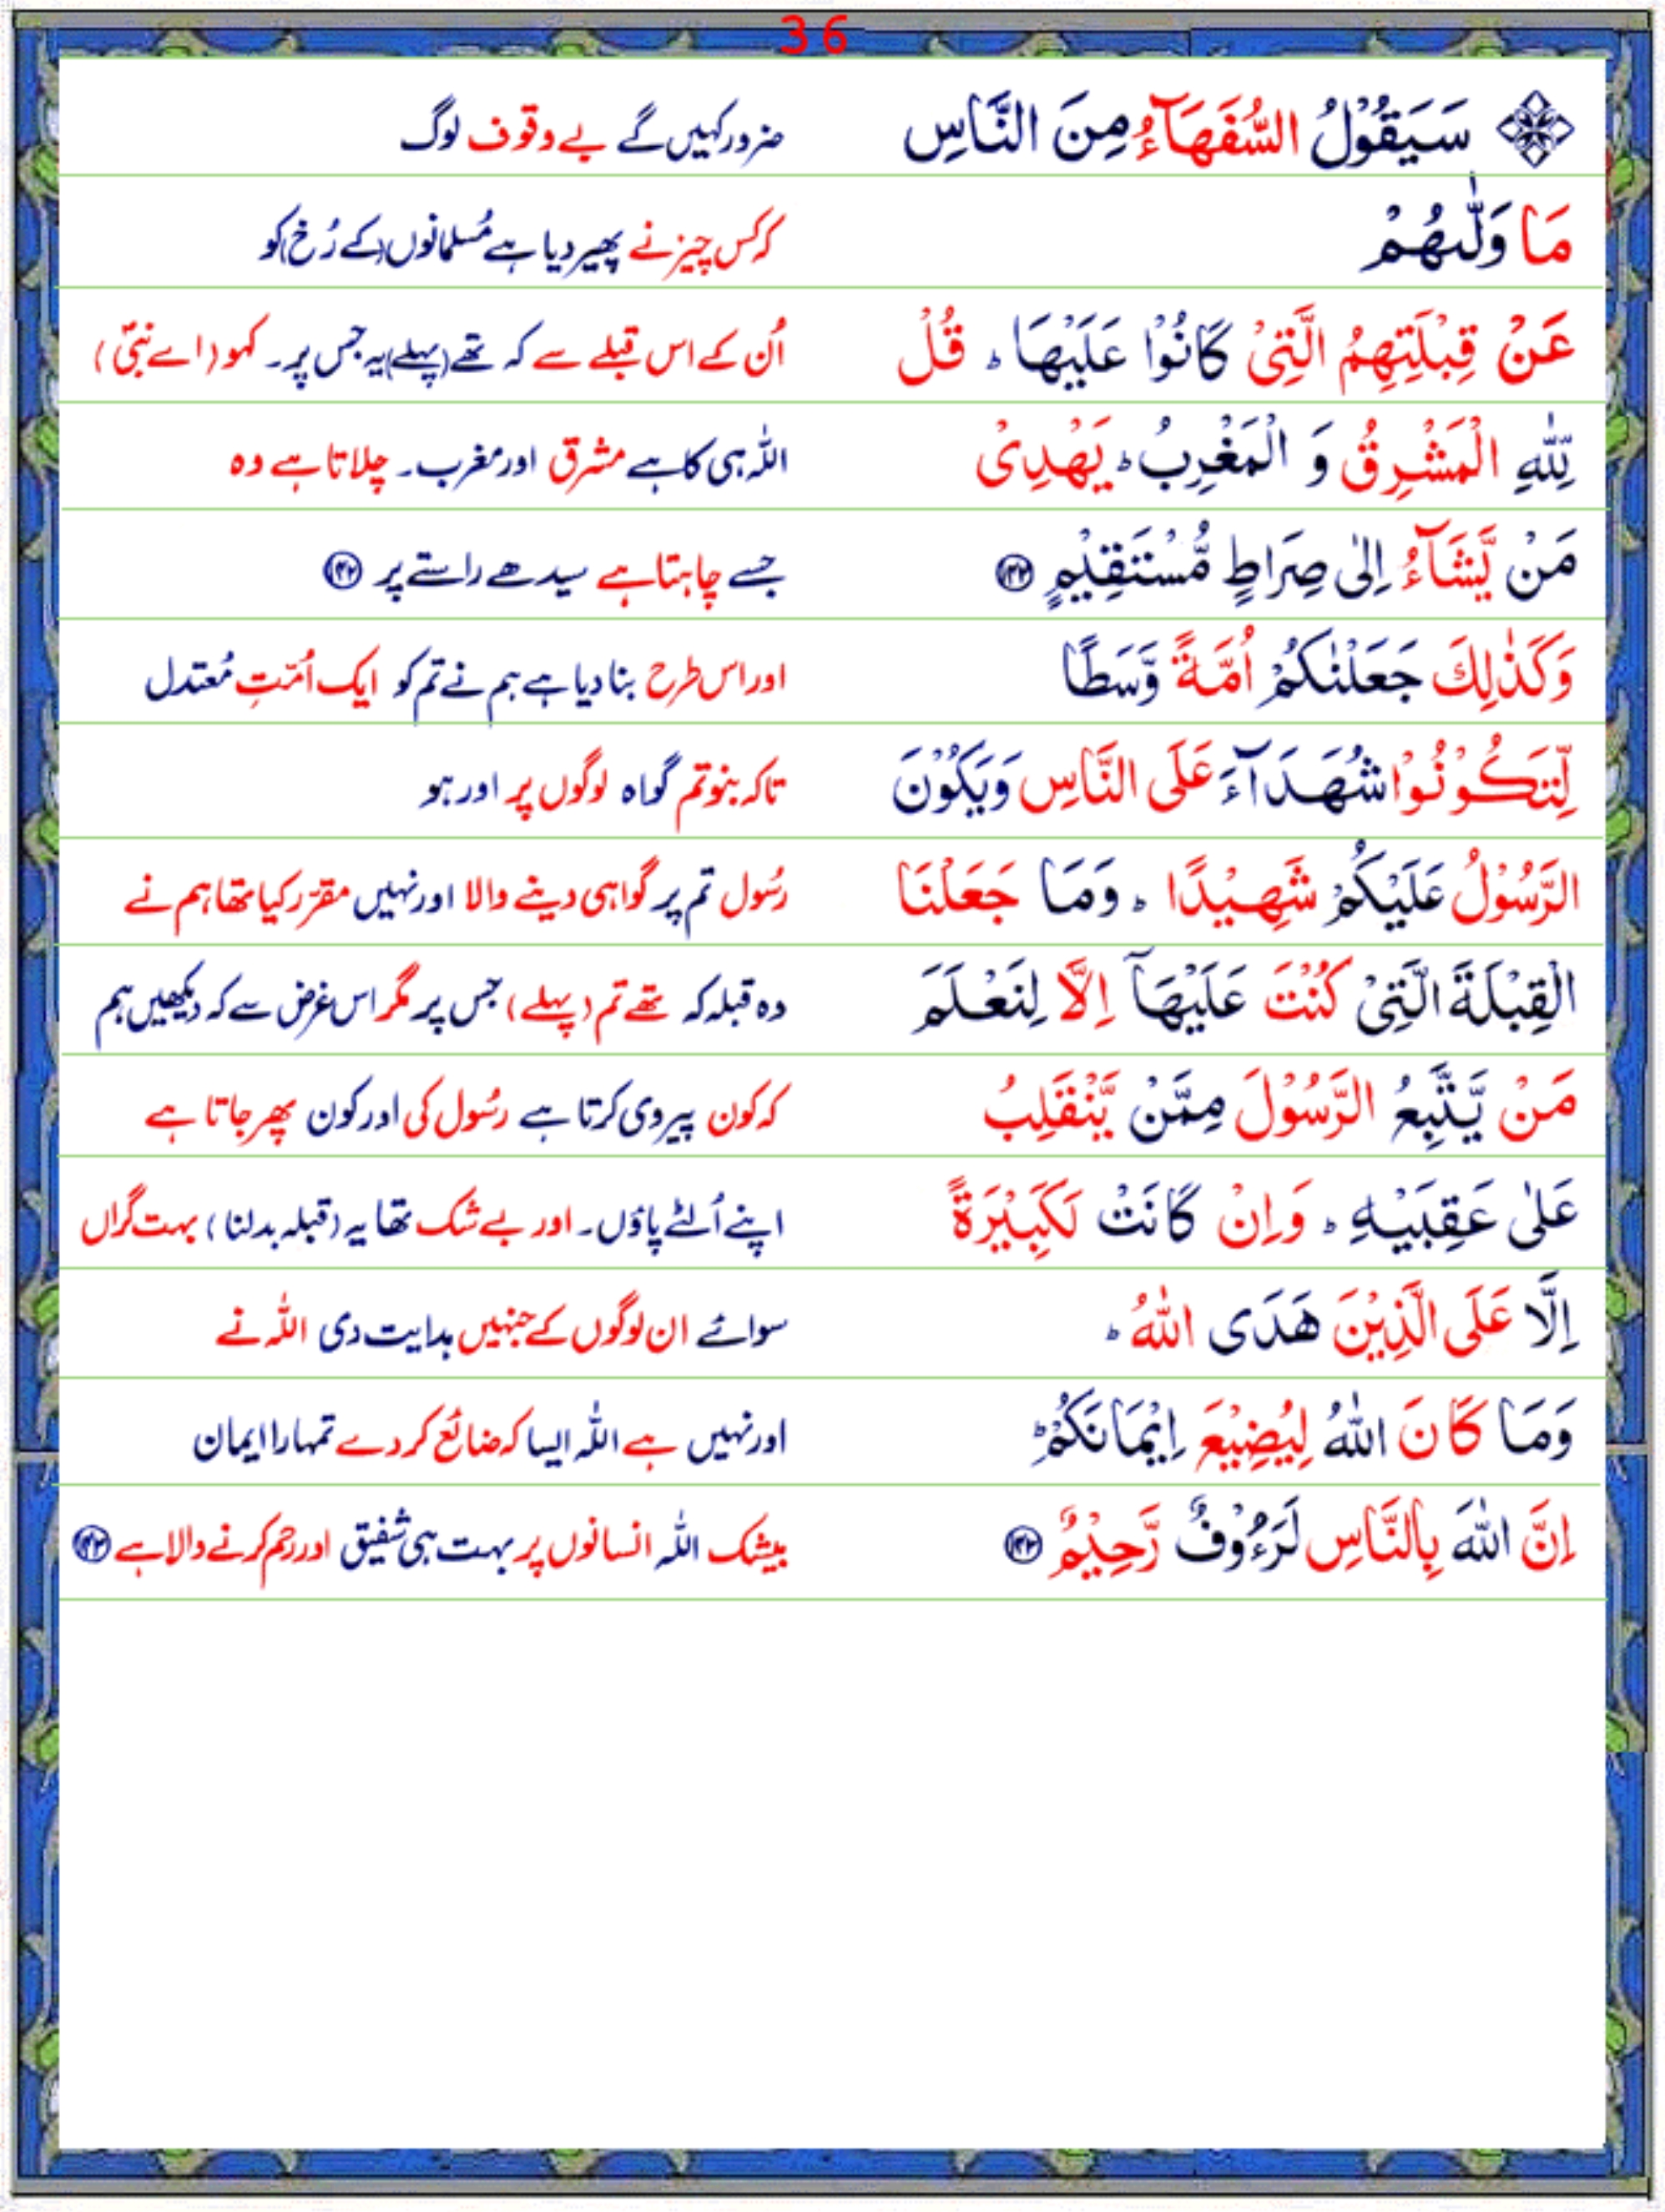 36
سَيَقُوْلُ السُّفَهَآءُ مِنَ النَّاسِ ضرور کہیں گے بے وقوف لوگ
مَا وَلّٰىهُمْ کہ کس چیز نے پھیر دیا ہے مُسلمانوں (کے رُخ) کو
عَنْ قِبْلَتِهِمُ الَّتِىْ كَانُوْا عَلَيْهَا ؕ قُلْ اُن کے اس قبلے سے کہ تھے (پہلے) یہ جس پر۔ کہو (اے نبیؐ)
لِّلّٰهِ الْمَشْرِقُ وَ الْمَغْرِبُ ؕ يَهْدِىْ اللہ ہی کا ہے مشرق اور مغرب۔ چلاتا ہے وہ
مَنْ يَّشَآءُ اِلٰى صِرَاطٍ مُّسْتَقِيْمٍ ﴿۱۴۲﴾ جسے چاہتا ہے سیدھے راستے پر ﴿۱۴۲﴾
وَكَذٰلِكَ جَعَلْنٰكُمْ اُمَّةً وَّسَطًا اور اس طرح بنا دیا ہے ہم نے تم کو ایک اُمّتِ مُعتدل
لِّتَكُوْنُوْا شُهَدَآءَ عَلَى النَّاسِ وَيَكُوْنَ تاکہ بنو تم گواہ لوگوں پر اور ہو
الرَّسُوْلُ عَلَيْكُمْ شَهِيْدًا ؕ وَمَا جَعَلْنَا رسُول تم پر گواہی دینے والا اور نہیں مقرّر کیا تھا ہم نے
الْقِبْلَةَ الَّتِىْ كُنْتَ عَلَيْهَآ اِلَّا لِنَعْلَمَ وہ قبلہ کہ تھے تم (پہلے) جس پر مگر اس غرض سے کہ دیکھیں ہم
مَنْ يَّتَّبِعُ الرَّسُوْلَ مِمَّنْ يَّنْقَلِبُ کہ کون پیروی کرتا ہے رسُول کی اور کون پھر جاتا ہے
عَلٰى عَقِبَيْهِ ؕ وَاِنْ كَانَتْ لَكَبِيْرَةً اپنے اُلٹے پاؤں۔ اور بے شک تھا یہ (قبلہ بدلنا) بہت گراں
اِلَّا عَلَى الَّذِيْنَ هَدَى اللّٰهُ ؕ سوائے ان لوگوں کے جنہیں ہدایت دی اللہ نے
وَمَا كَانَ اللّٰهُ لِيُضِيْعَ اِيْمَانَكُمْ ؕ اور نہیں ہے اللہ ایسا کہ ضائع کر دے تمہارا ایمان
اِنَّ اللّٰهَ بِالنَّاسِ لَرَءُوْفٌ رَّحِيْمٌ ﴿۱۴۳﴾ بیشک اللہ انسانوں پر بہت ہی شفیق اور رحم کرنے والا ہے ﴿۱۴۳﴾